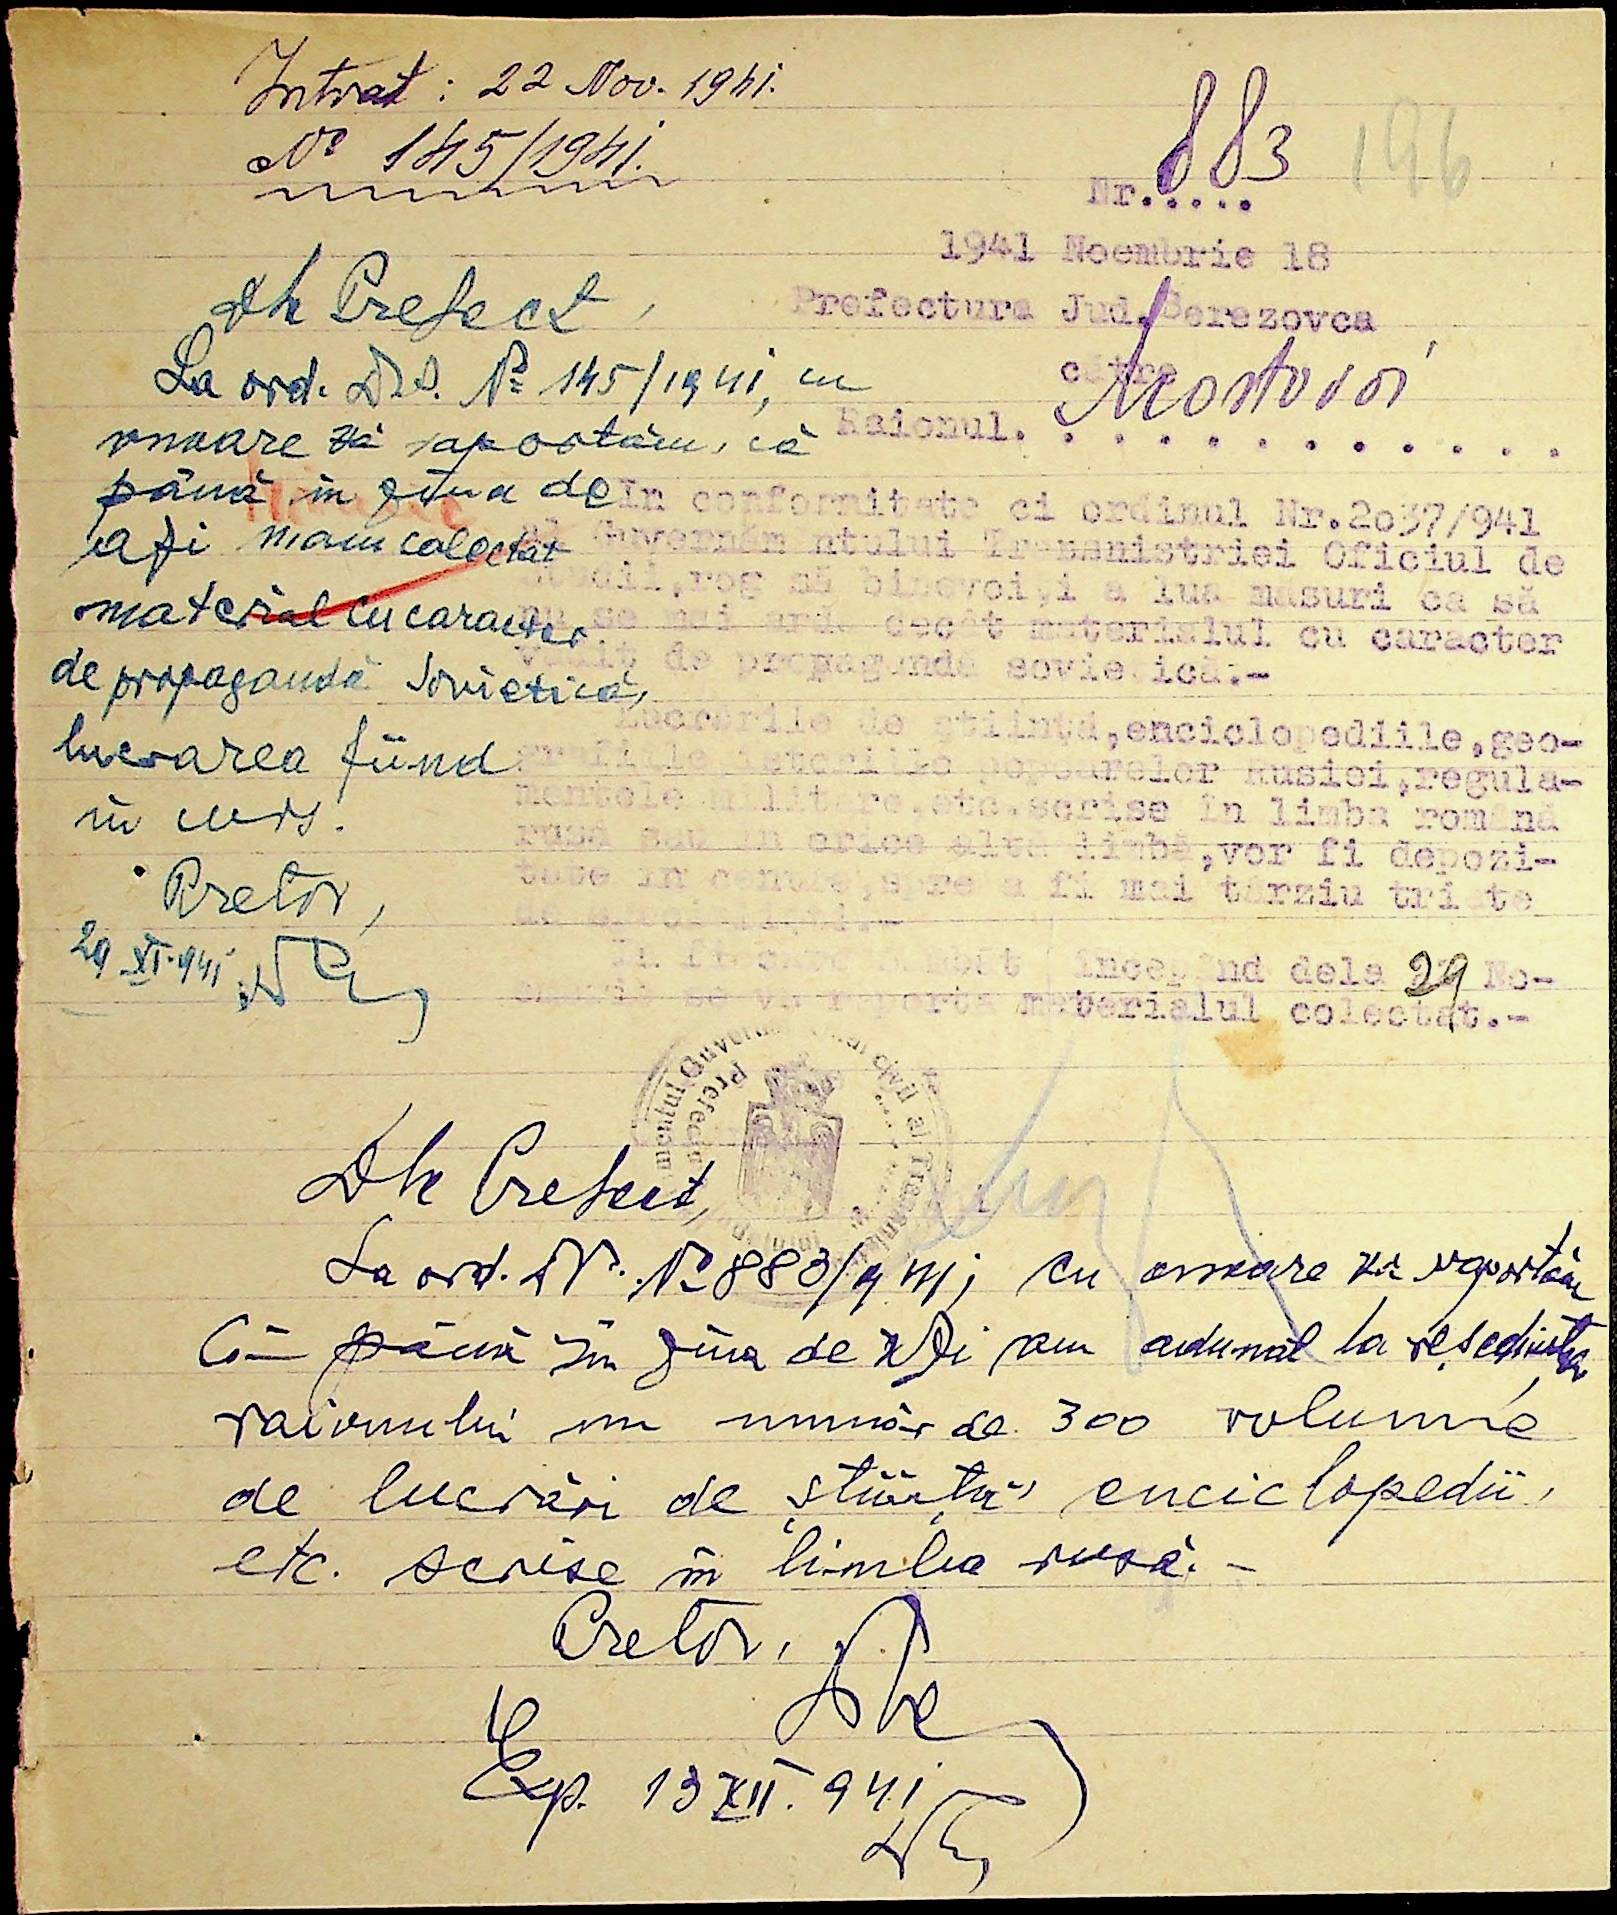 Intrat: 22 Nov. 1941.
No 145/1941.
883
196
Nr.....
1941 Noembrie 18
Prefectura Jud. Berezovca
către
Raionul. Mostovoi
In conformitate ci ordinul Nr.2037/941
Guvernăm ntului Transnistriei Oficiul de
rog să binevoiți a lua masuri ca să
nu se mai ardă decât materialul cu caracter
vădit de propagandă sovietică.-
Lucrările de știință,enciclopediile,geo-
grafiile istoriile popoarelor Rusiei,regula-
mentele militare,etc.scrise în limba română
rusă sau în orice altă limbă,vor fi depozi-
tate în centre,spre a fi mai târziu triate
de
începând dela 29 No-
embrie se va raporta materialul colectat.-
Dle Prefect,
La ord. Dvs. No 145/1941, cu
onoare vă raportăm, că
până în ziua de
azi n'am colectat
material cu caracter
de propagandă Sovietică,
lucrarea fiind
în curs.
Pretor,
29 XI.941
Dle Prefect,
La ord. No 883/941, cu onoare vă raportăm
Că până în ziua de azi am adunat la reședința
raionului un număr de 300 volume
de lucrări de știință, enciclopedii,
etc. scrise în limba rusă.-
Pretor,
Exp. 13 XII. 941